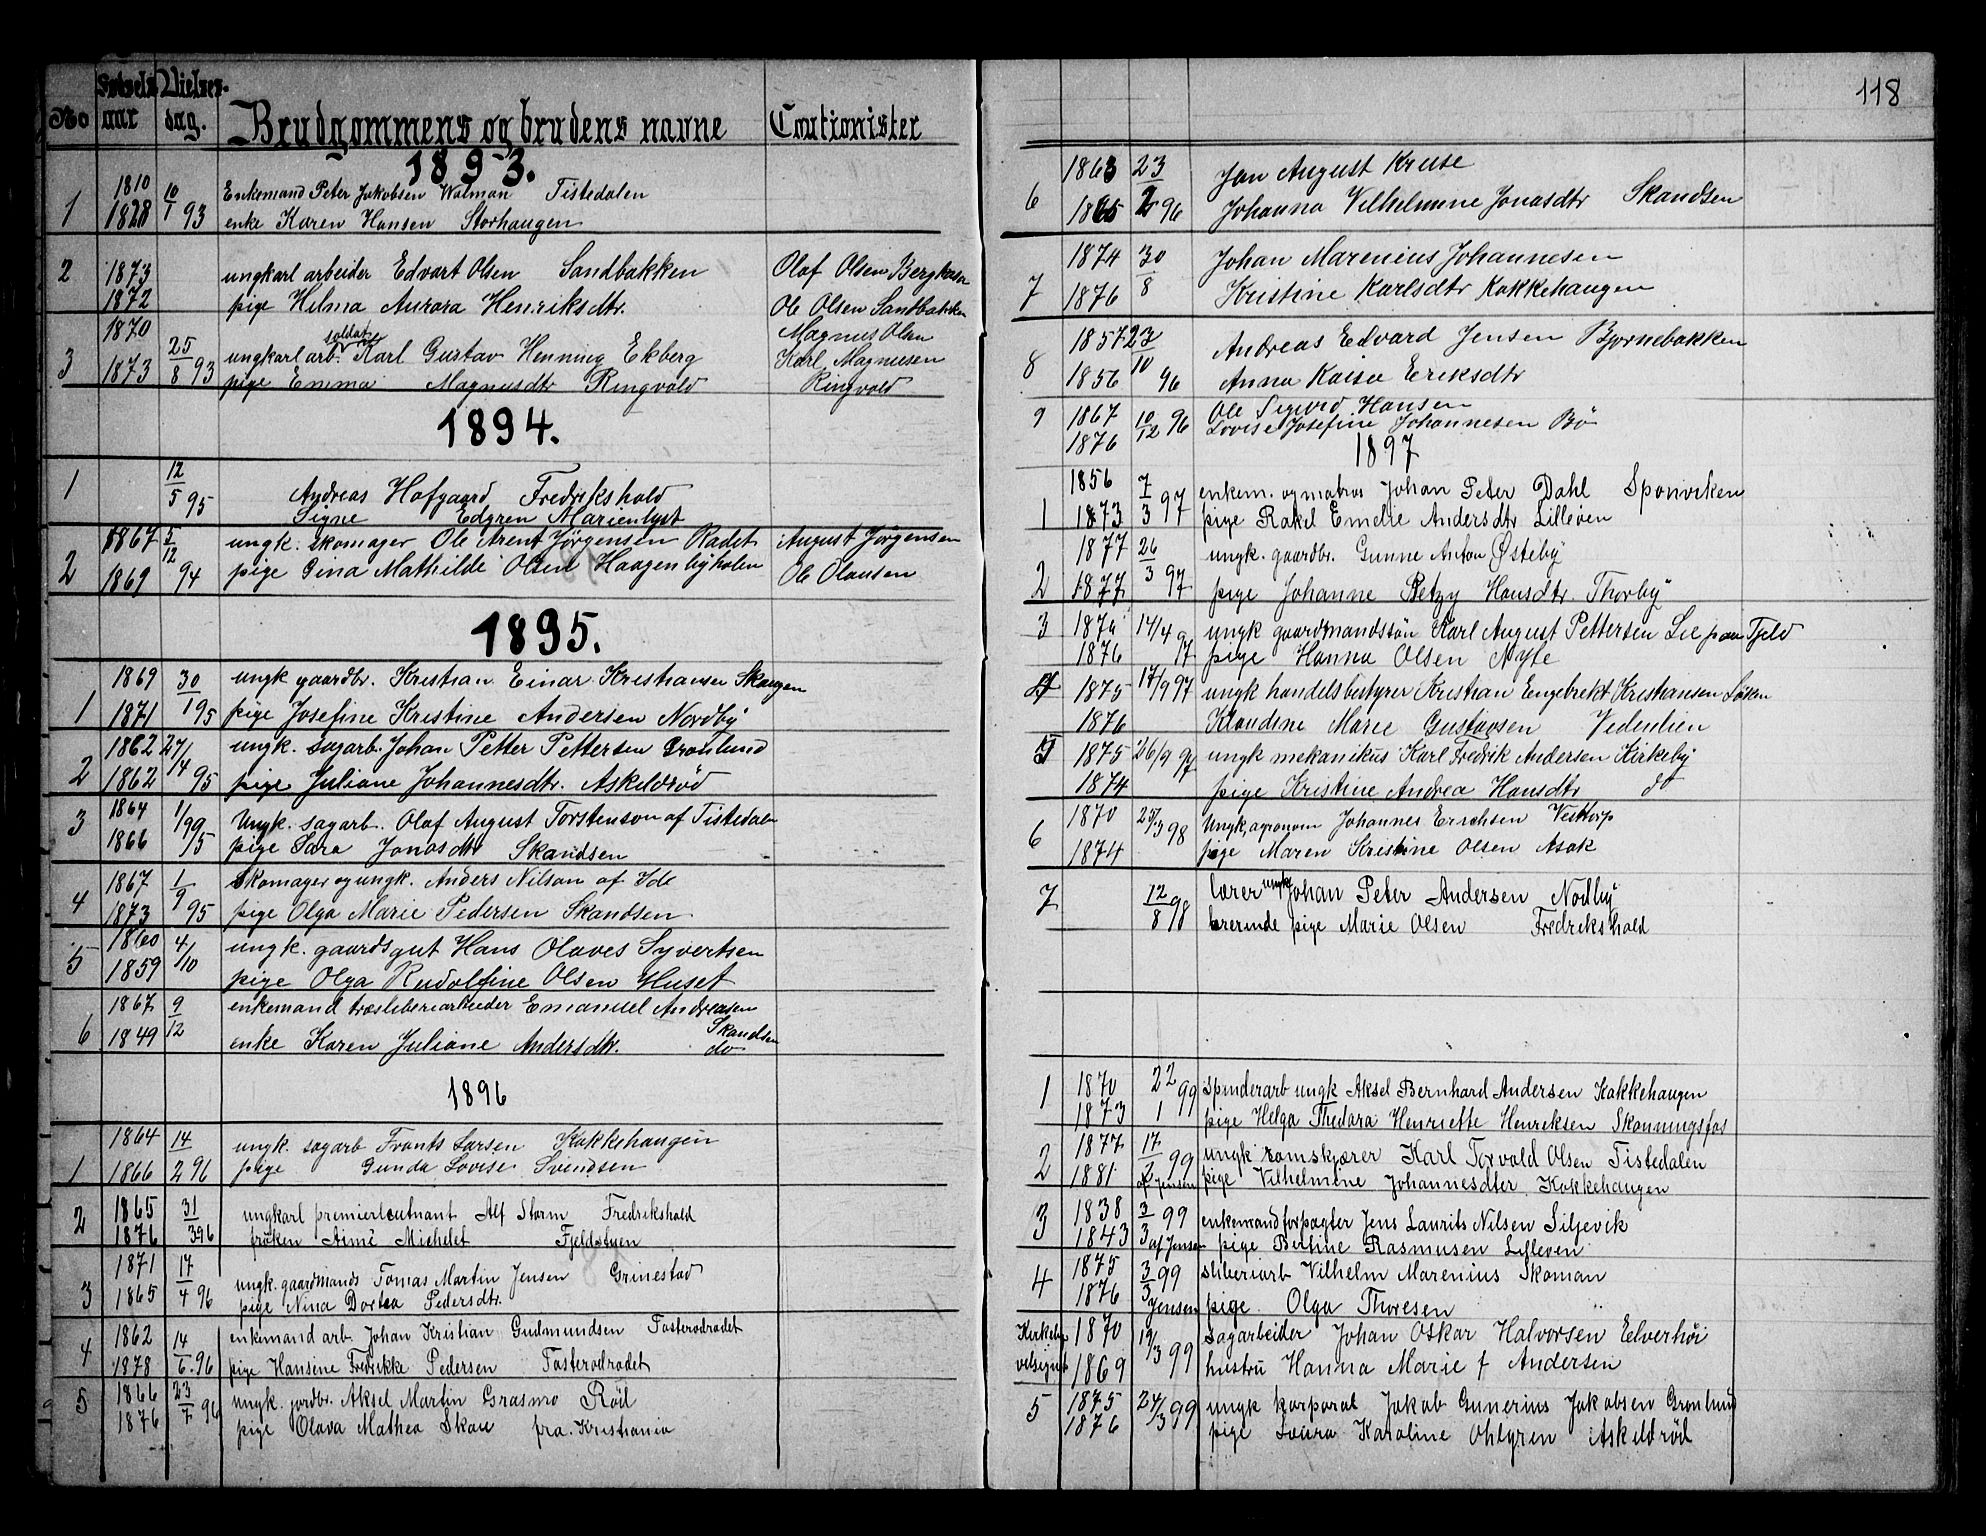 No Fødsels aar Vielses dag. Brudgommens og brudens navne Coutionister
1893.
1 1810 10/1 93 Enkemand Peter Jakobsen Walman Tistedalen
1828 enke Karen Hansen Storhaugen
2 1873 ungkarl arbeider Edvart Olsen Sandbakken Olaf Olsen
1872 pige Hilma Aurora Henriksdtr. Ole Olsen Sandbakken
3 1870 25/8 93 ungkarl arb. soldat Karl Gustav Henning Ekberg Magnus Olsen
1873 pige Emma Magnusdtr Ringvold Karl Magnusen
Ringvold
1894.
1 12/5 95 Andreas Hofgaard Fredrikshald
Signe Edgren Marienlyst
2 1867 5/12 94 ungk. skomager Ole Arent Jørgensen Radet August Jørgensen
1869 pige Gina Mathilde Olsen Haagenbyholen Ole Olausen
1895.
1 1869 30/1 95 ungk gaardbr. Kristian Einar Kristiansen Skaugen
1871 pige Josefine Kristine Andersen Nordby
2 1862 27/4 95 ungk. sagarb. Johan Petter Pettersen Grønlund
1862 pige Juliane Johannesdtr. Askeldrød
3 1864 1/5 Ungk. sagarb. Olaf August Torstenson af Tistedalen
1866 pige Sara Jonasdtr Skandsen
4 1867 1/9 95 Skomager og ungk. Anders Nilson af Ide
1873 pige Olga Marie Pedersen Skandsen
5 1860 4/10 ungk. gaardsgut Hans Olaves Syvertsen
1859 pige Olga Rudolfine Olsen Huset
6 1867 9/12 enkemand træsliberiarbeider Emanuel Andreasen Skandsen
1849 enke Karen Juliane Andersdtr. do
1896
1 1864 14/2 96 ungk. sagarb Frants Larsen Kokkehaugen
1866 pige Gunda Lovise Svendsen
2 1865 31/3 96 ungkarl premierleutnant Alf Storm Fredrikshald
1871 frøken Aimé Michelet Fjeldstuen
3 1871 17/4 96 ungk. gaardmands Tomas Martin Jensen Grinestad
1865 pige Nina Dortea Pedersdtr.
4 1862 14/6 96 enkemand arb. Johan Kristian Gudmundsen Fosterødrødet
1878 pige Hansine Fredrikke Pedersen Fosterødrødet
5 1866 23/7 96 ungk. jordbr. Aksel Martin Grasmo Röd
1876 pige Olava Mathea Skau fra Kristiania
118
6 1863 23/2 96 Jan August Kruse
1865 Johanna Vilhelmine Jonasdtr Skandsen
7 1874 30/8 Johan Marenius Johannesen
1876 Kristine Karlsdtr Kokkehaugen
8 1857 23/10 96 Andreas Edvard Jensen Bjornebakken
1856 Anna Kaisa Eriksdtr
9 1867 10/12 96 Ole Sigurd Hansen
1876 Lovise Josefine Johannesen Bö
1897
1 1856 7/3 97 enkem. og matros Johan Peter Dahl Sponviken
1873 pige Rakel Emelie Andersdtr Lilleven
2 1877 26/3 97 ungk. gaardbr. Gunne Anton Østeby
1877 pige Johanne Betzy Hansdtr. Thorby
3 14/4 97 ungk gaardmandssøn Karl August Pettersen Lie paa Tjeld
1876 pige Hanna Olsen
4 1875 17/9 97 ungk handelsbestyrer Kristian Engebrekt Kristiansen
1876 Klaudine Marie Gustavsen Vedenlien
5 1875 26/9 97 ungk mekanikus Karl Fredrik Andersen Kirkeby
1874 pige Kristine Andrea Hansdtr do
6 1870 25/3 98 Ungk, agronom Johannes Erichsen Vestorp
1874 pige Maren Kristine Olsen Asak
7 12/8 98 lærer ungk Johan Peter Andersen Nodby
lærerinde pige Marie Olsen Fredrikshald
1 1870 22/1 99 spinderarb ungk Aksel Bernhard Andersen Kokkehaugen
1873 pige Helga Thedora Henriette Henriksen Skonningsfos
2 1877 17/2 99 ungk tomskjærer Karl Torvald Olsen Tistedalen
1881. af Jensen pige Vilhelmine Johannesdter Kokkehaugen
3 1838 3/3 99 enkemand forpagter Jens Laurits Nilsen Siljevik
1843 af Jensen pige Bertine Rasmusen Lilleven
4 1875 3/3 99 sliberiarb Vilhelm Marenius Skoman
1876 Jensen pige Olga Thoresen
Kirkelig 1870 19/3 99 sagarbeider Johan Oskar Halvorsen Elverhöi
velsignet 1869 hustru Hanna Marie f Andersen
5 1875 24/3 99 ungk korporal Jakob Gunerius Jakobsen Gronlund
1876 pige Laura Karoline Ohlgren Askeldröd